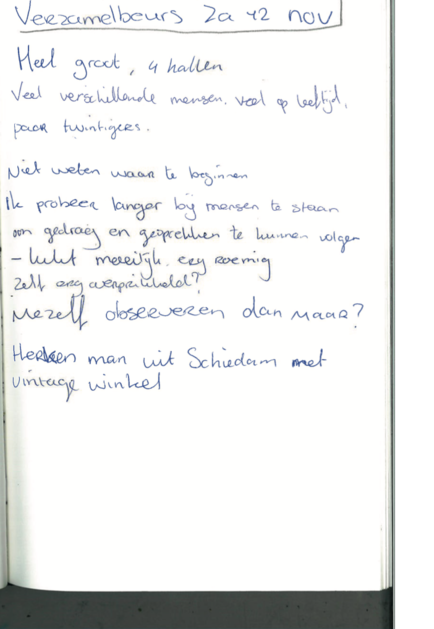 Verzamelbeurs Za 12 nov
Heel groot, 4 hallen
Veel verschillende mensen, veel op leeftijd,
paar twintigers.
Niet weten waar te beginnen
Ik probeer langer bij mensen te staan
om gedrag en gesprekken te kunnen volgen
- lukt moeilijk, erg roemig
Zelf erg overprikkeld?
Mezelf observeren dan maar?
Herken man uit Schiedam met
vintage winkel